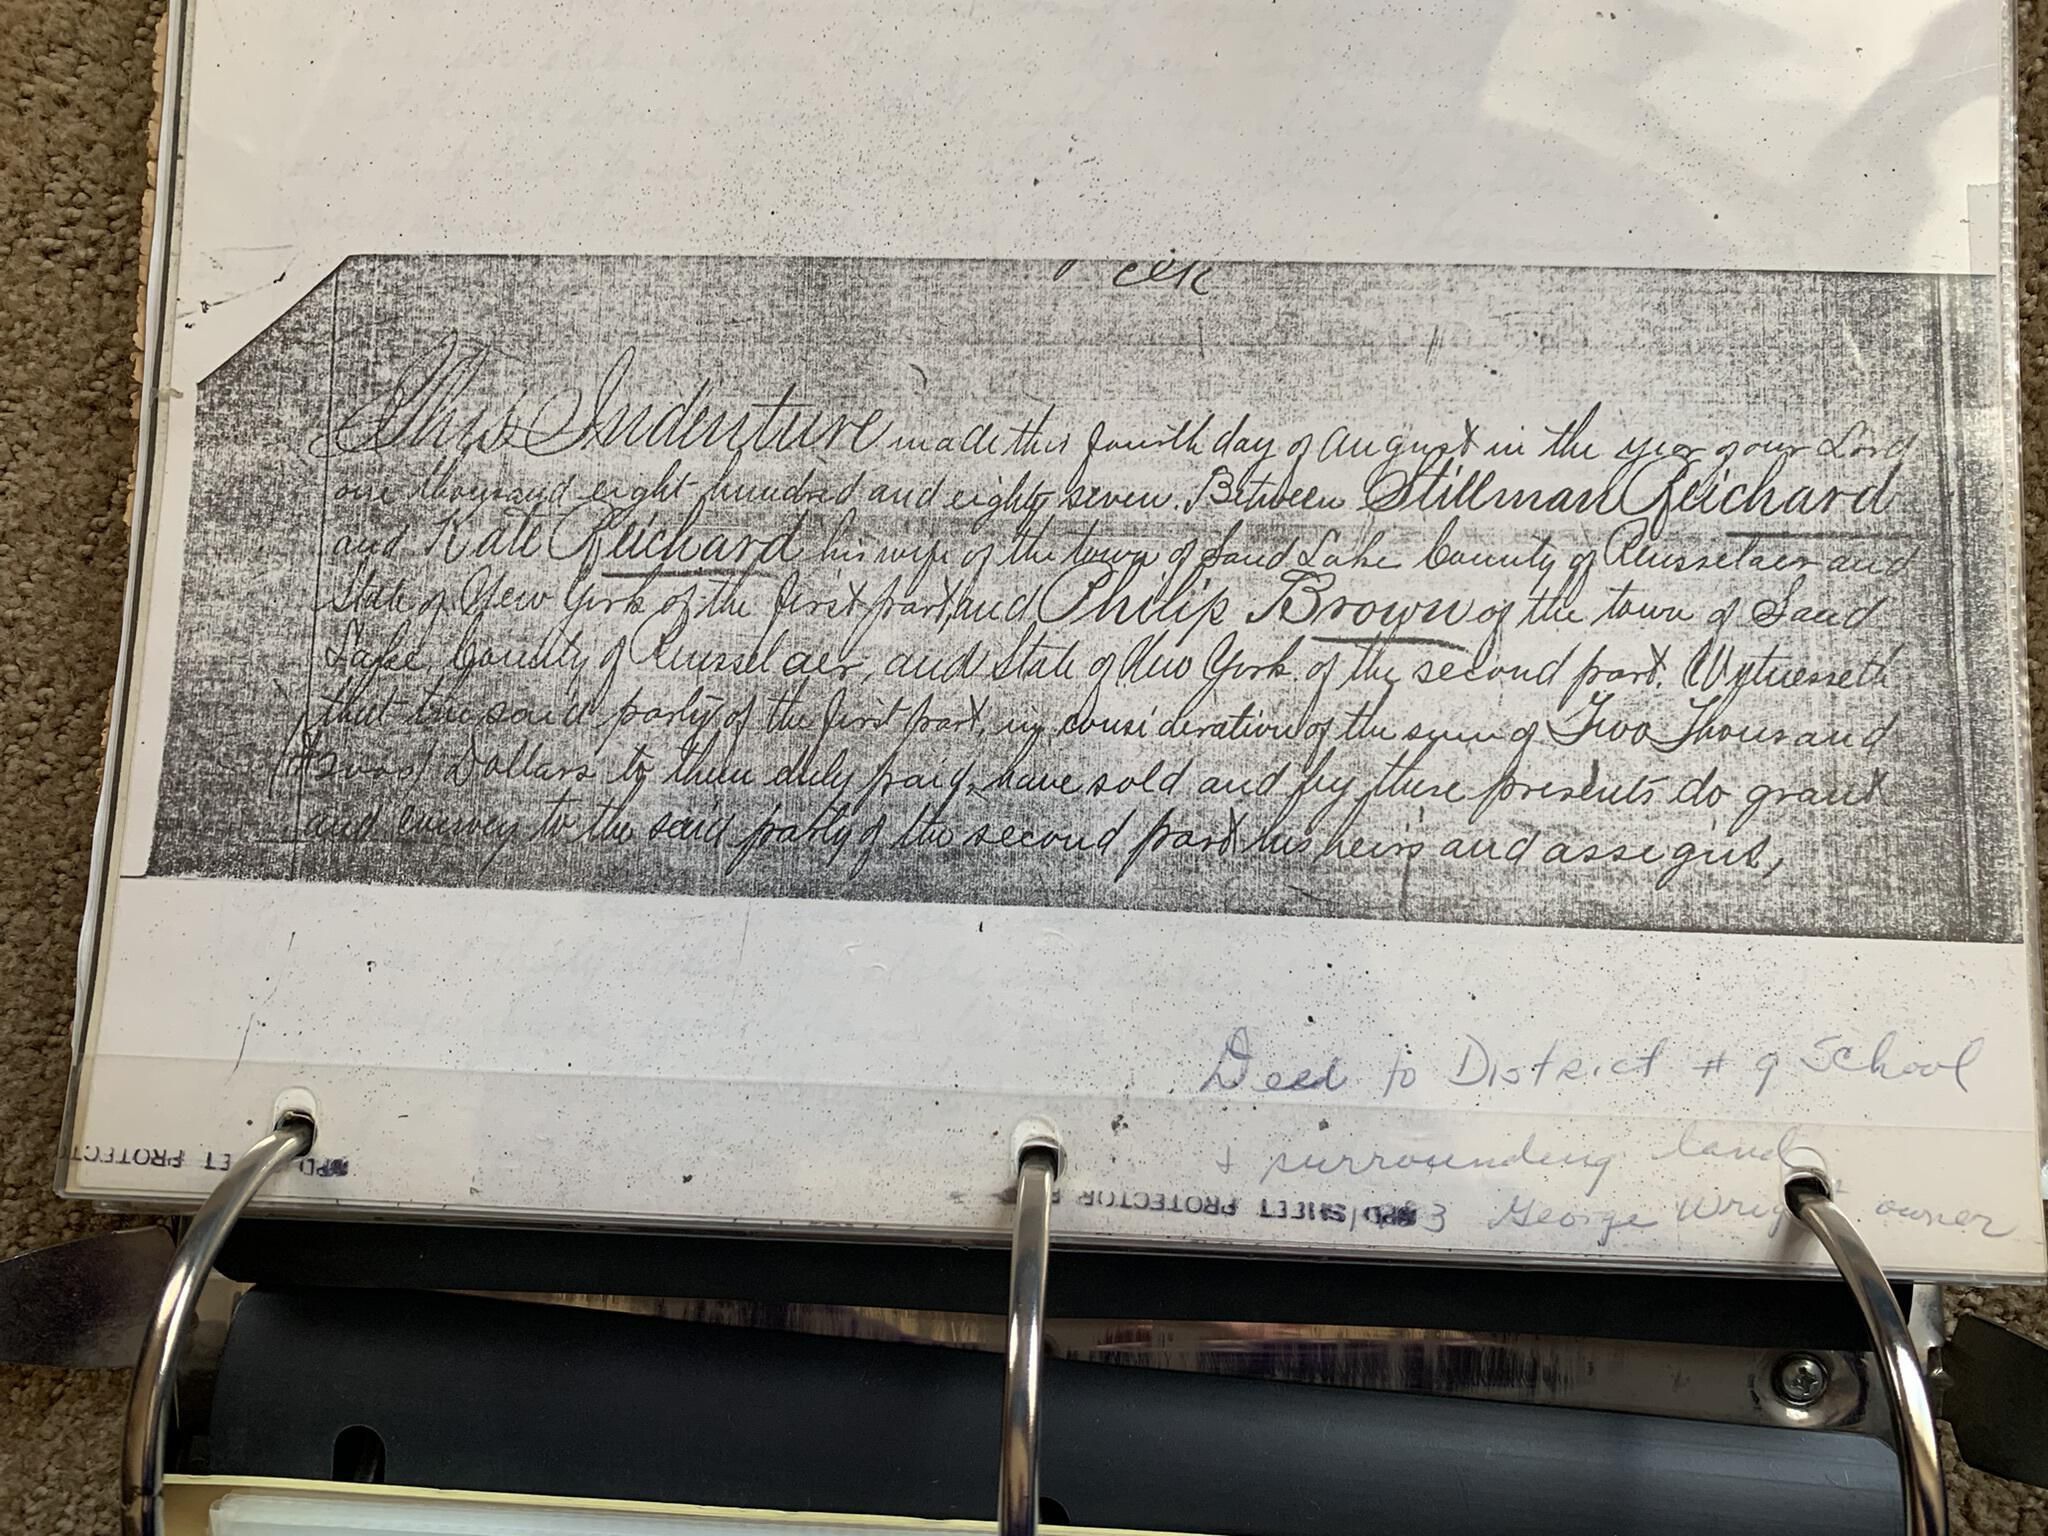 This Indenture made this fourth day of august in the year of our Lord
one thousand eight hundred and eighty seven. Between Stillman Reichard
and Kate Reichard his wife of the town of Sand Lake County of Rensselaer and
State of New York of the first part, and Philip Brown of the town of Sand
Lake, County of Rensselaer, and State of New York of the second part. Wytnesseth
that the said party of the first part, in consideration of the sum of Two Thousand
Dollars to them duly paid, have sold and by these presents do grant
and convey to the said party of the second part his heirs and assigns,
Deed to District # 9 School
+ surrounding land
George owner
SHEET PROTECTOR